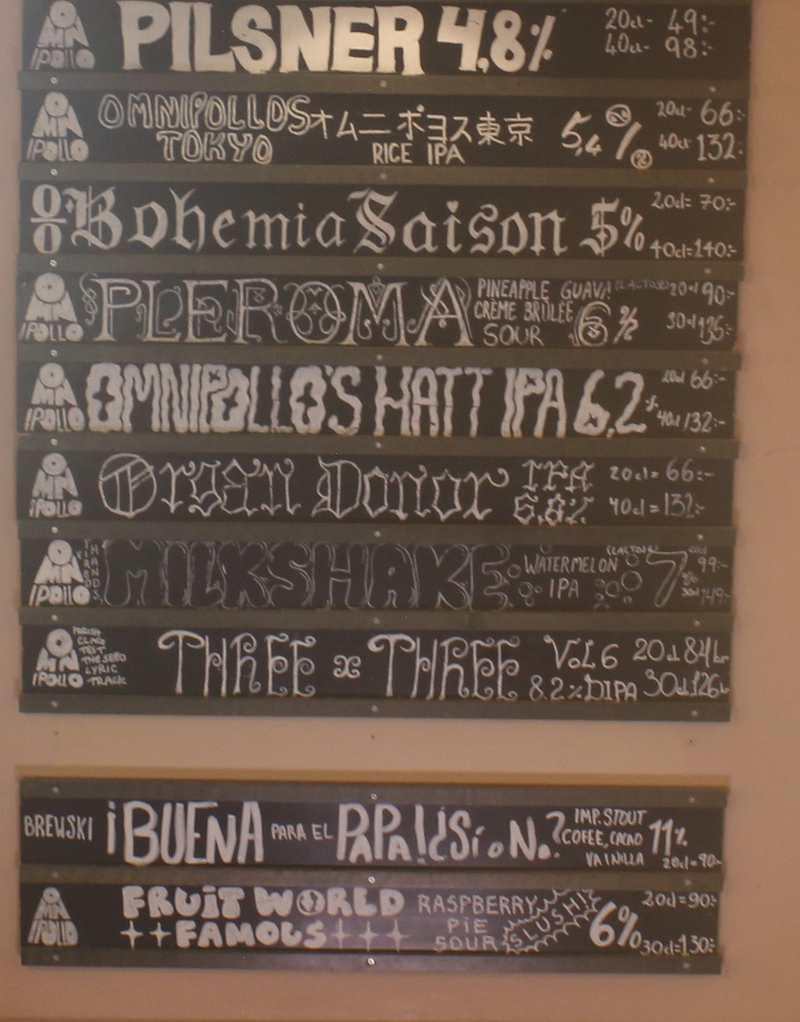 OMNIPOLLO PILSNER 4,8% 20cl- 49:-
40cl- 98:-
OMNIPOLLO OMNIPOLLOS TOKYO オムニポヨス東京 RICE IPA 5,4% 20cl- 66:-
40cl- 132:-
O/O Bohemia Saison 5% 20cl= 70:-
40cl=140:-
OMNIPOLLO PLEROMA PINEAPPLE GUAVA (LACTOSE) 20cl 90:-
CRÈME BRÛLÉE
SOUR 6% 30cl 135:-
OMNIPOLLO OMNIPOLLO'S HATT IPA 6,2%. 20cl 66:-
40cl 132:-
OMNIPOLLO Organ Donor IPA 20cl= 66:-
6,8% 40cl=132:-
OMNIPOLLO TIRED HANDS MILKSHAKE WATERMELON IPA (LACTOSE) 7% 20cl 99:-
30cl 149:-
OMNIPOLLO THREE x THREE VOL 6 20cl 84kr
8.2% DIPA 30cl 126kr
BREWSKI ¡BUENA PARA EL PAPA! ¿Sí o No? IMP. STOUT
COFEE, CACAO
VAINILLA 11% 20cl=90:-
OMNIPOLLO FRUIT WORLD FAMOUS RASPBERRY
PIE
SOUR SLUSH! 6% 20cl=90:-
30cl=130:-